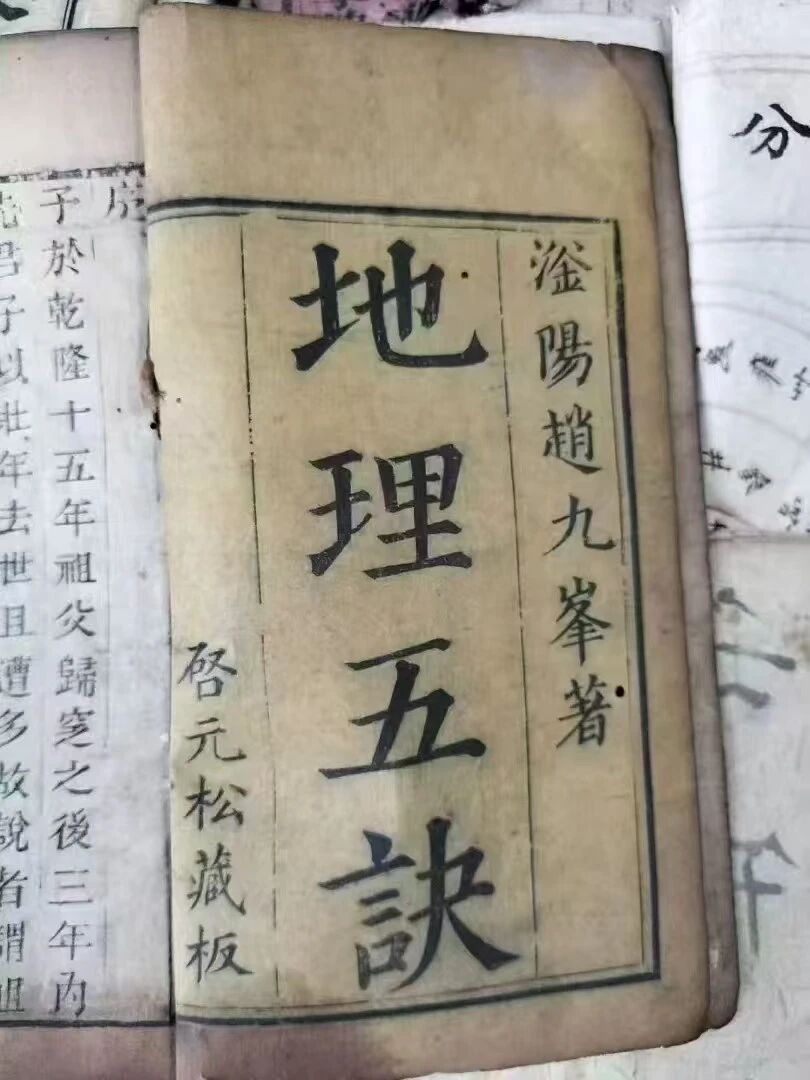 滏陽趙九峯著
地理五訣
啓元松藏板
序
予於乾隆十五年祖父歸窆之後三年內
先君子以壯年去世且遭多故說者謂祖
分